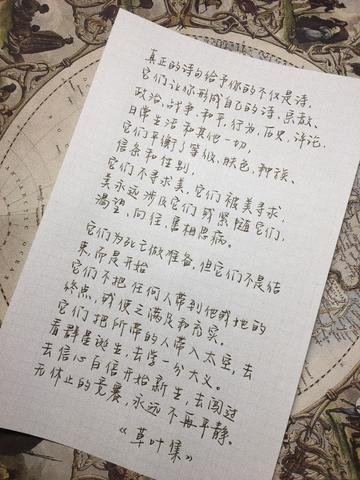 真正的诗句给予你的不仅是诗,
它们让你形成自己的诗,宗教,
政治,战争,和平,行为,历史,评论,
日常生活和其他一切,
它们平衡了等级,肤色,种族、
信条和性别,
它们不寻求美,它们被美寻求,
美永远涉及它们或紧随它们,
渴望,向往,害相思病。
它们为死亡做准备,但它们不是结
束,而是开始
它们不把任何人带到他或她的
终点,或使之满足和充实,
它们把所带的人带入太空,去
看群星诞生,去学一分大义。
去信心百倍开始新生,去闯过
无休止的竞赛,永远不再平静。
《草叶集》